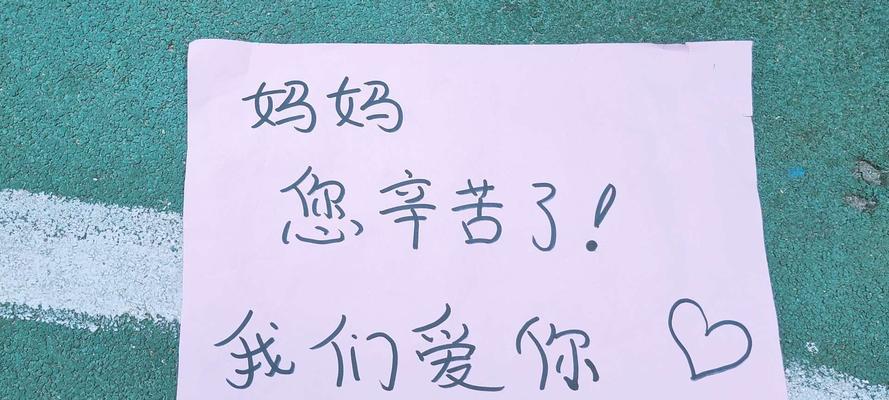 妈妈
您辛苦了!
我们爱你